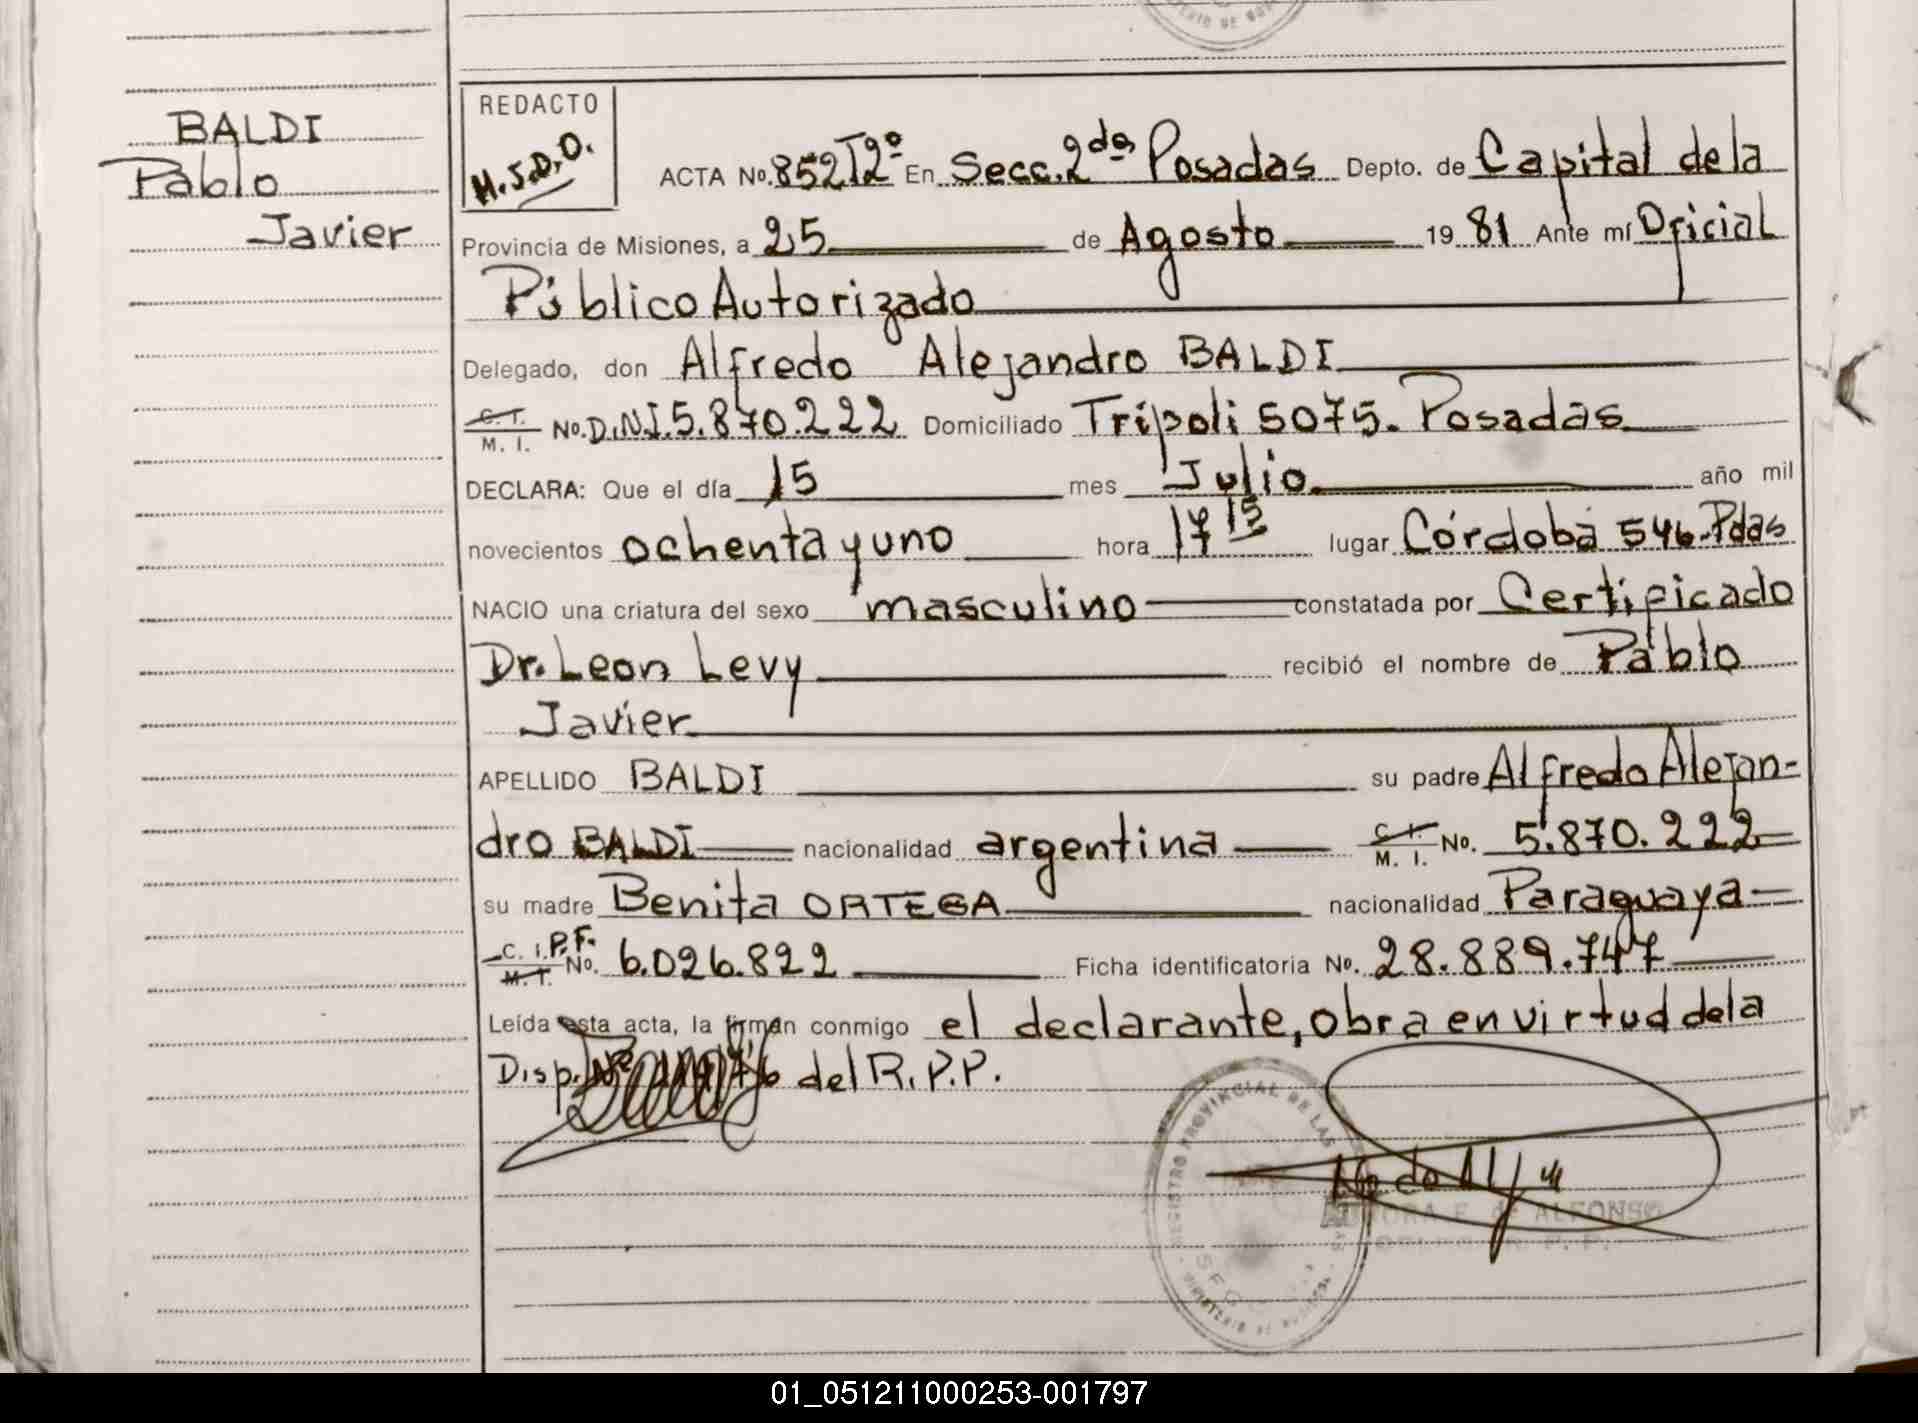 BALDI
Pablo
Javier
REDACTO
H.J.D.O.
ACTA No. 852 T2º En Secc. 2da Posadas Depto. de Capital de la
Provincia de Misiones, a 25 de Agosto 19 81 Ante mí Oficial
Público Autorizado
Delegado, don Alfredo Alejandro BALDI
C. I. M. I. No. D.N.I. 5.870.222 Domiciliado Trípoli 5075. Posadas
DECLARA: Que el día 15 mes Julio año mil
novecientos ochenta y uno hora 17 15 lugar Córdoba 546. Pdas
NACIO una criatura del sexo masculino constatada por Certificado
Dr. Leon Levy recibió el nombre de Pablo
Javier
APELLIDO BALDI su padre Alfredo Alejan-
dro BALDI nacionalidad argentina C. I. M. I. No. 5.870.222
su madre Benita ORTEGA nacionalidad Paraguaya
C. I. P.F. M. I. No. 6.026.822 Ficha identificatoria No. 28.889.747
Leída esta acta, la firman conmigo el declarante, obra en virtud de la
Disp. Nº del R.P.P.
REGISTRO PROVINCIAL DE LAS
DE ALFONSO
01_051211000253-001797